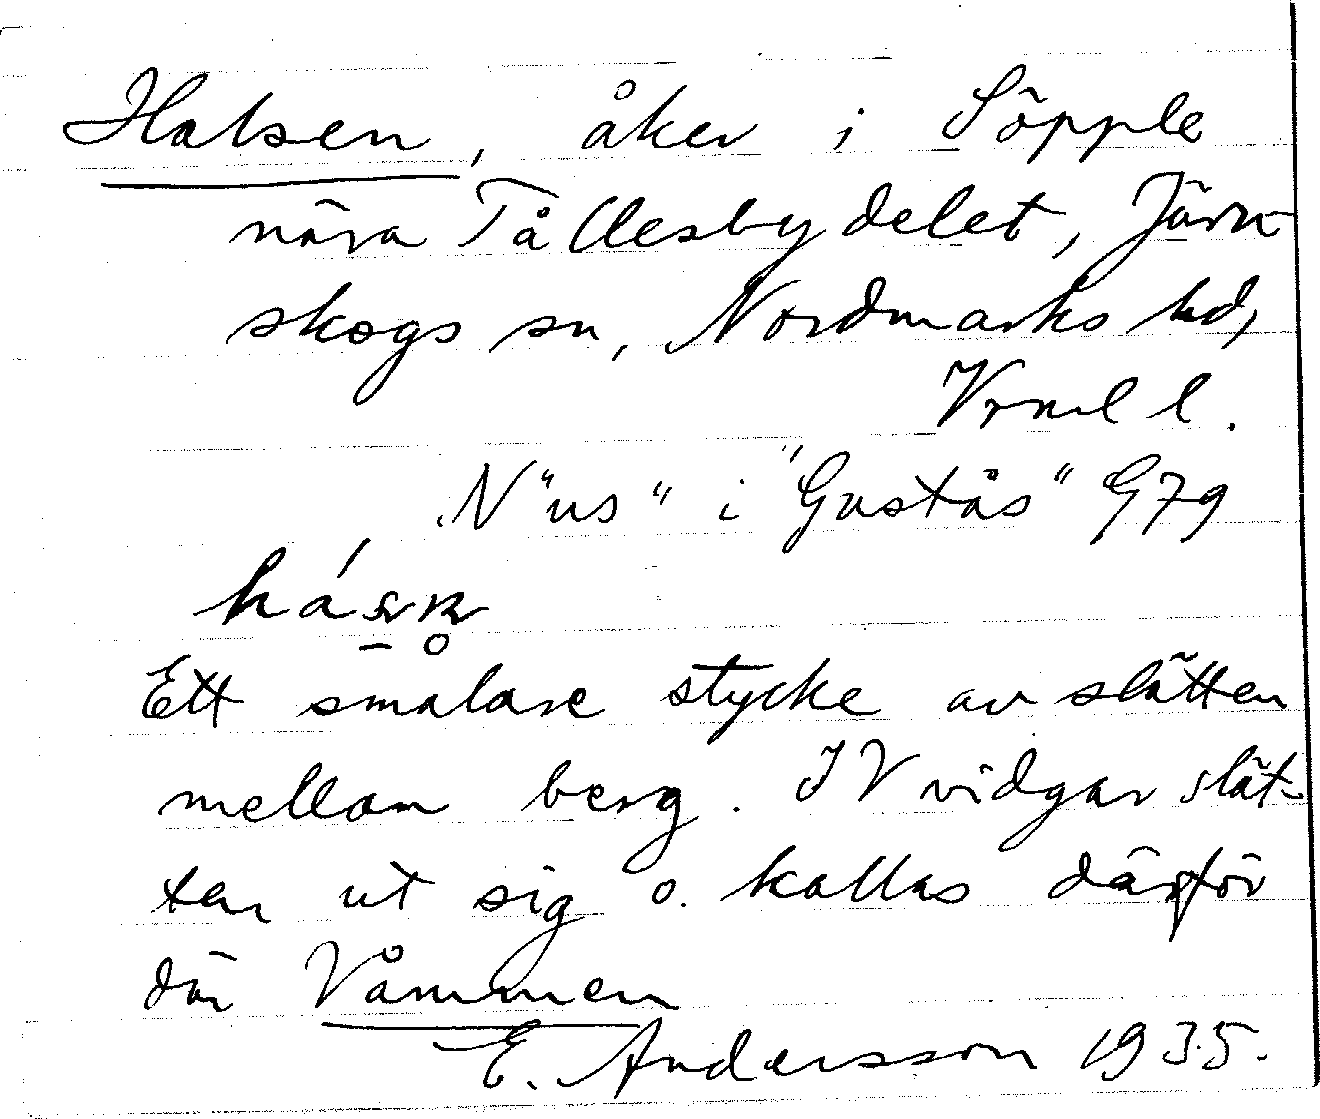 Halsen, åker i Söpple
nära Tållesbydelet, Järn-
skogs sn, Nordmarks hd,
Vrml l.
N "us" i "Gustås" G79
Ett smalare stycke av slätten
mellan berg. I V vidgar slät-
ten ut sig o. kallas därför
där Våmmen
E. Andersson 1935.